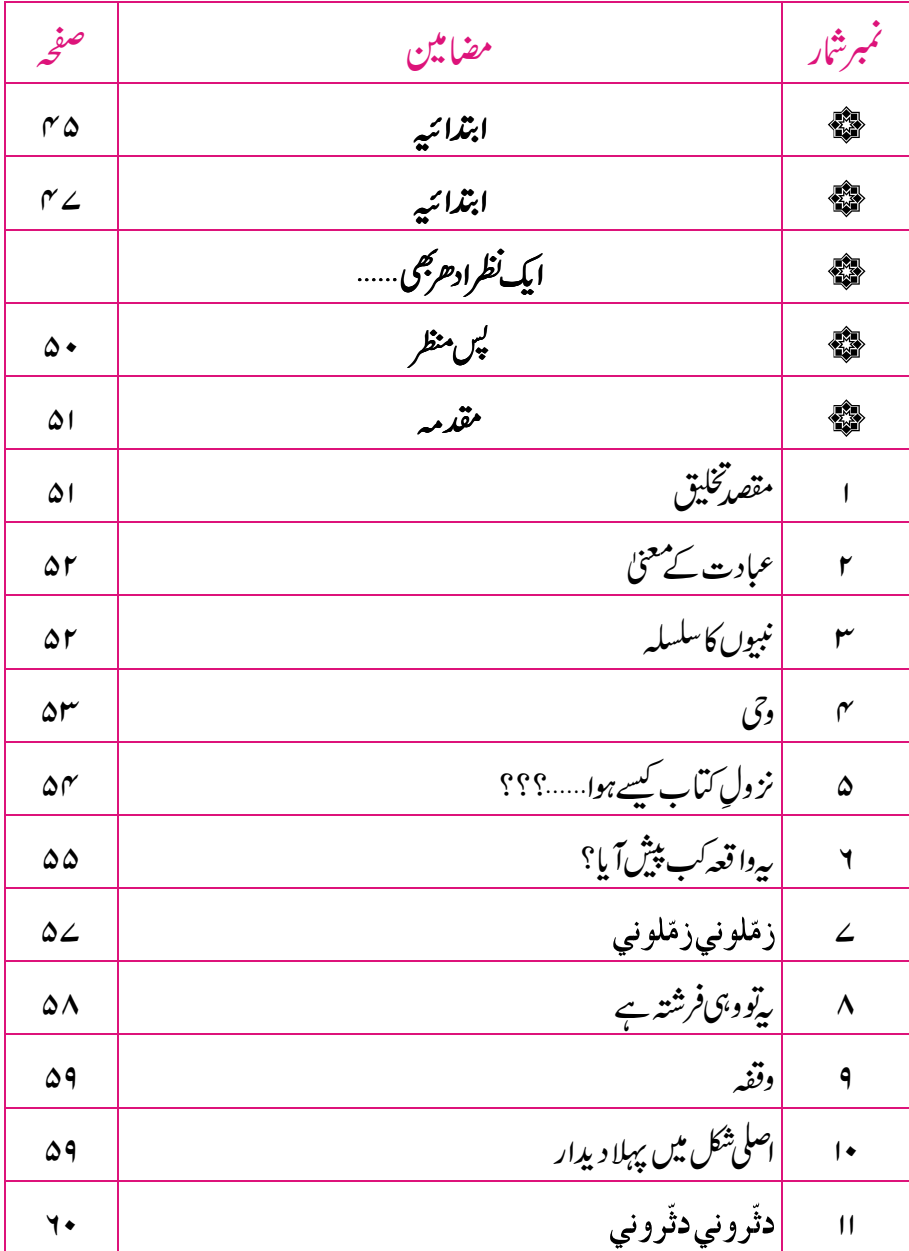 نمبر شمار مضامین صفحہ
ابتدائیہ ۴۵
ابتدائیہ ۴۷
ایک نظر ادھر بھی......
پس منظر ۵۰
مقدمہ ۵۱
۱ مقصد تخلیق ۵۱
۲ عبادت کے معنیٰ ۵۲
۳ نبیوں کا سلسلہ ۵۲
۴ وحی ۵۳
۵ نزولِ کتاب کیسے ہوا......؟؟؟ ۵۴
۶ یہ واقعہ کب پیش آیا؟ ۵۵
۷ زمّلوني زمّلوني ۵۷
۸ یہ تو وہی فرشتہ ہے ۵۸
۹ وقفہ ۵۹
۱۰ اصلی شکل میں پہلا دیدار ۵۹
۱۱ دثّروني دثّروني ۶۰